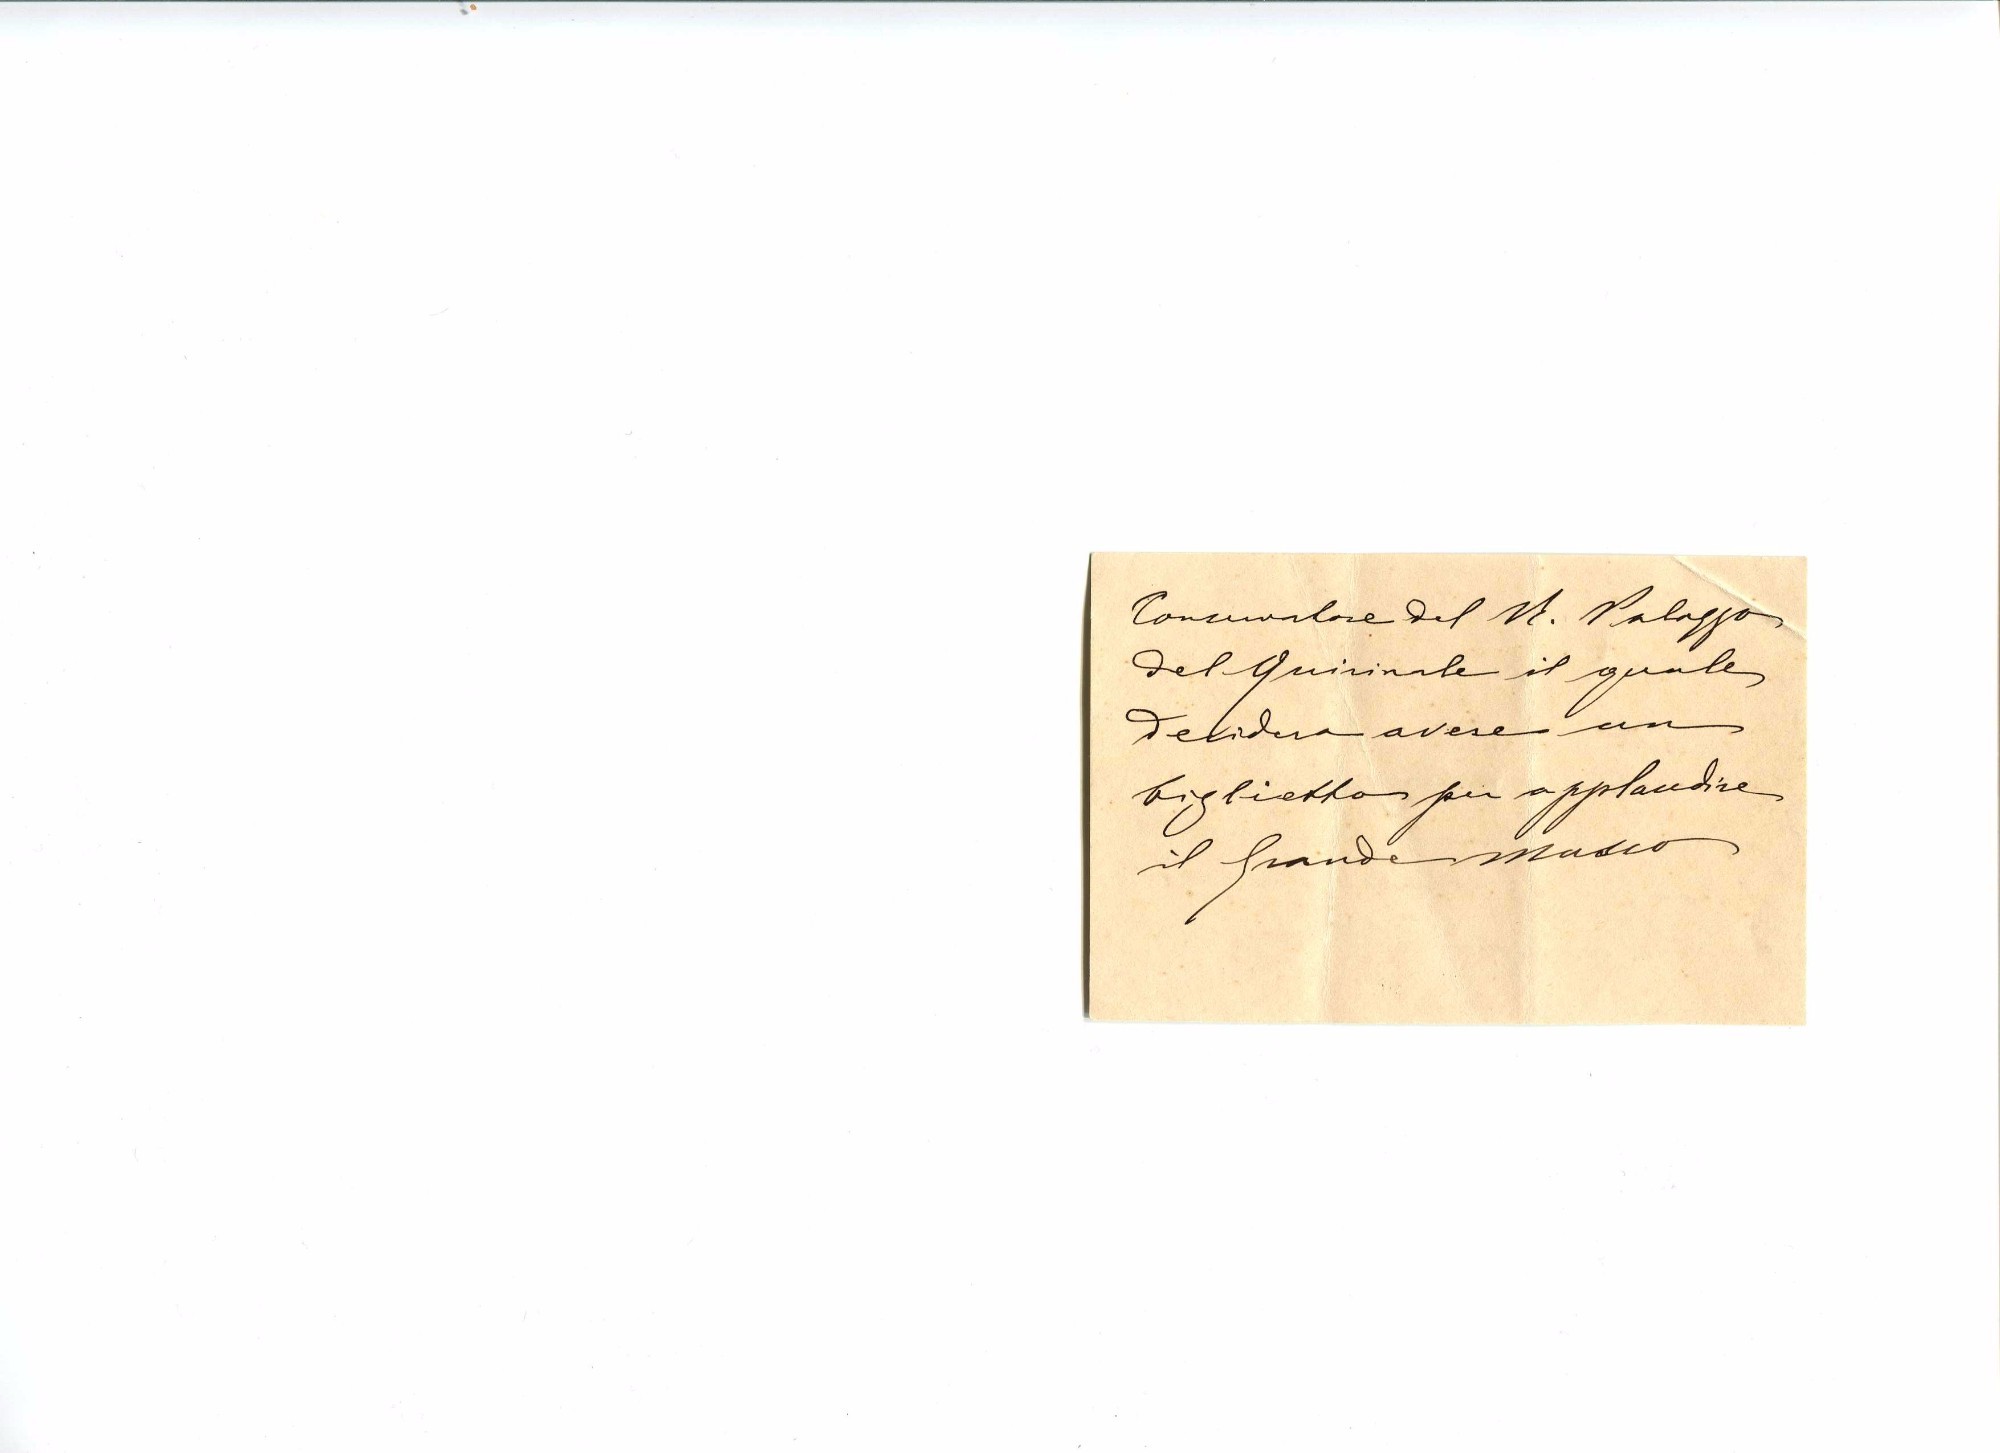 Conservatore del R. Palazzo
del Quirinale il quale
desidera avere un
biglietto per applaudire
il Grande Musco